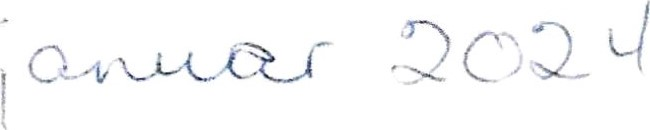 januar 2024